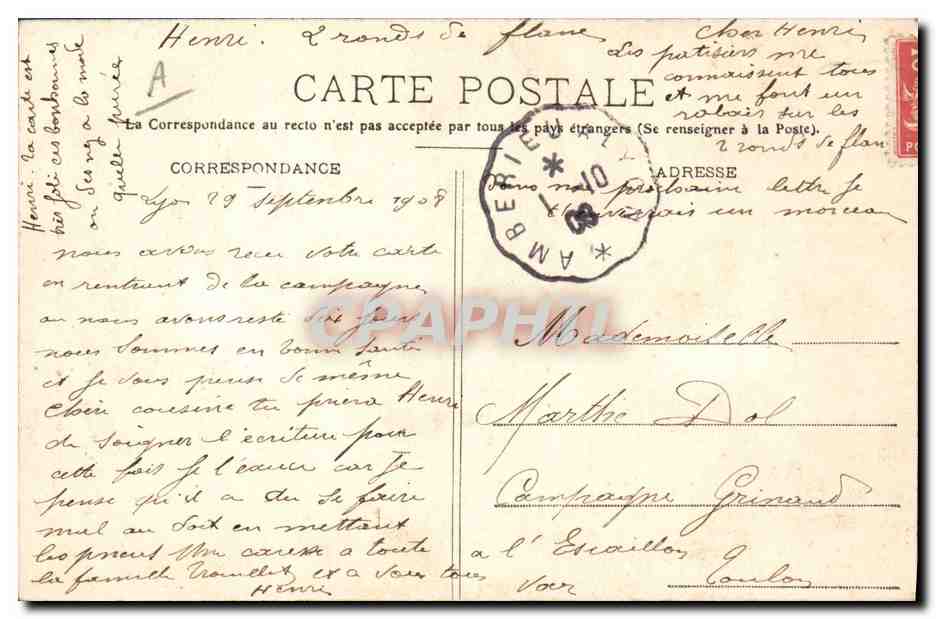 Henri. 2 ronds de flanc
Cher Henri
Les patisiers me
connaissent tous
et me font un
rabais sur les
2 ronds de flan
dans ma prochaine lettre je
t'enverrais un morceau
A
CARTE POSTALE
La Correspondance au recto n'est pas acceptée par tous les pays étrangers (Se renseigner à la Poste).
CORRESPONDANCE
ADRESSE
Henri. ta carte est
très joli ces bonbonnes
on des nez a la mode
année
Lyon 29 Septembre 1908
nous avons recu votre carte
en rentrent de la campagne
ou nous avons resté dix jours
nous sommes en bonne santé
et je vous pense de même
Chère cousine tu priera Henri
de soigner l'écriture pour
cette fois je l'excuse car je
pense qu'il a du se faire
mal au doit en mettant
les pneus Une caresse a toute
la famille et a vous tous
Henri
AMBERIEU A
1 -10
08
CPAPHIL
Mademoiselle
Marthe Dol
Campagne Grinaud
a l'Escaillon
Var Toulon